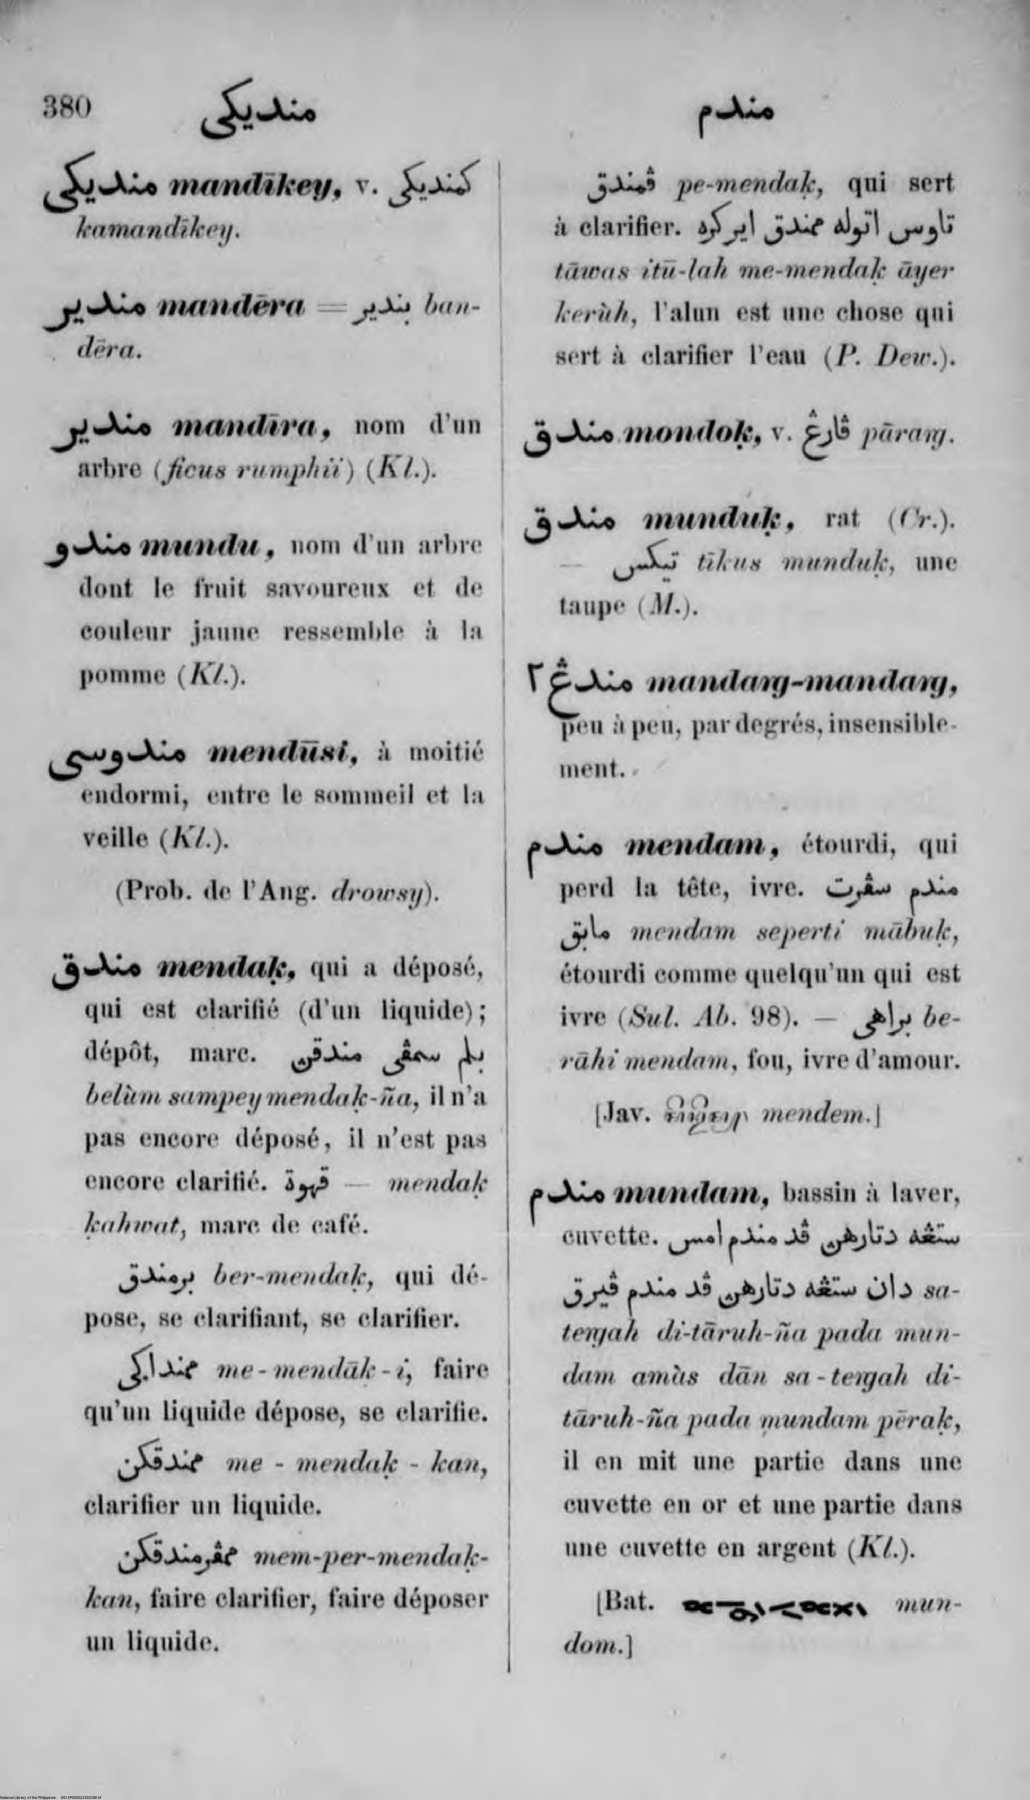 380 منديكي مندم
منديكي mandīkey, v. كمنديكي
kamandīkey.
مندير mandēra = بندير ban-
dēra.
مندير mandīra, nom d'un
arbre (ficus rumphii) (Kl.).
مندو mundu, nom d'un arbre
dont le fruit savoureux et de
couleur jaune ressemble à la
pomme (Kl.).
مندوسي mendūsi, à moitié
endormi, entre le sommeil et la
veille (Kl.).
(Prob. de l'Ang. drowsy).
مندق mendaḳ, qui a déposé,
qui est clarifié (d'un liquide);
dépôt, marc. بلم سمڤي مندقن
belùm sampey mendaḳ-ña, il n'a
pas encore déposé, il n'est pas
encore clarifié. قهوة — mendaḳ
ḳahwat, marc de café.
برمندق ber-mendaḳ, qui dé-
pose, se clarifiant, se clarifier.
ممنداكي me-mendāḳ-i, faire
qu'un liquide dépose, se clarifie.
ممندقكن me-mendaḳ-kan,
clarifier un liquide.
ممڤرمندقكن mem-per-mendaḳ-
kan, faire clarifier, faire déposer
un liquide.
ڤمندق pe-mendaḳ, qui sert
à clarifier. تاوس اتوله ممندق اير كره
tāwas itū-lah me-mendaḳ āyer
kerùh, l'alun est une chose qui
sert à clarifier l'eau (P. Dew.).
مندق mondoḳ, v. ڤارڠ pāraŋ.
مندق munduḳ, rat (Cr.).
— تيكس tīkus munduḳ, une
taupe (M.).
مندڠ٢ mandaŋ-mandaŋ,
peu à peu, par degrés, insensible-
ment.
مندم mendam, étourdi, qui
perd la tête, ivre. مندم سڤرت
مابق mendam seperti mābuḳ,
étourdi comme quelqu'un qui est
ivre (Sul. Ab. 98). — براهي be-
rāhi mendam, fou, ivre d'amour.
[Jav. mendem.]
مندم mundam, bassin à laver,
cuvette. ستڠه دتارهن ڤد مندم امس
دان ستڠه دتارهن ڤد مندم ڤيرق sa-
teŋah di-tāruh-ña pada mun-
dam amàs dān sa-teŋah di-
tāruh-ña pada mundam pēraḳ,
il en mit une partie dans une
cuvette en or et une partie dans
une cuvette en argent (Kl.).
[Bat. mun-
dom.]